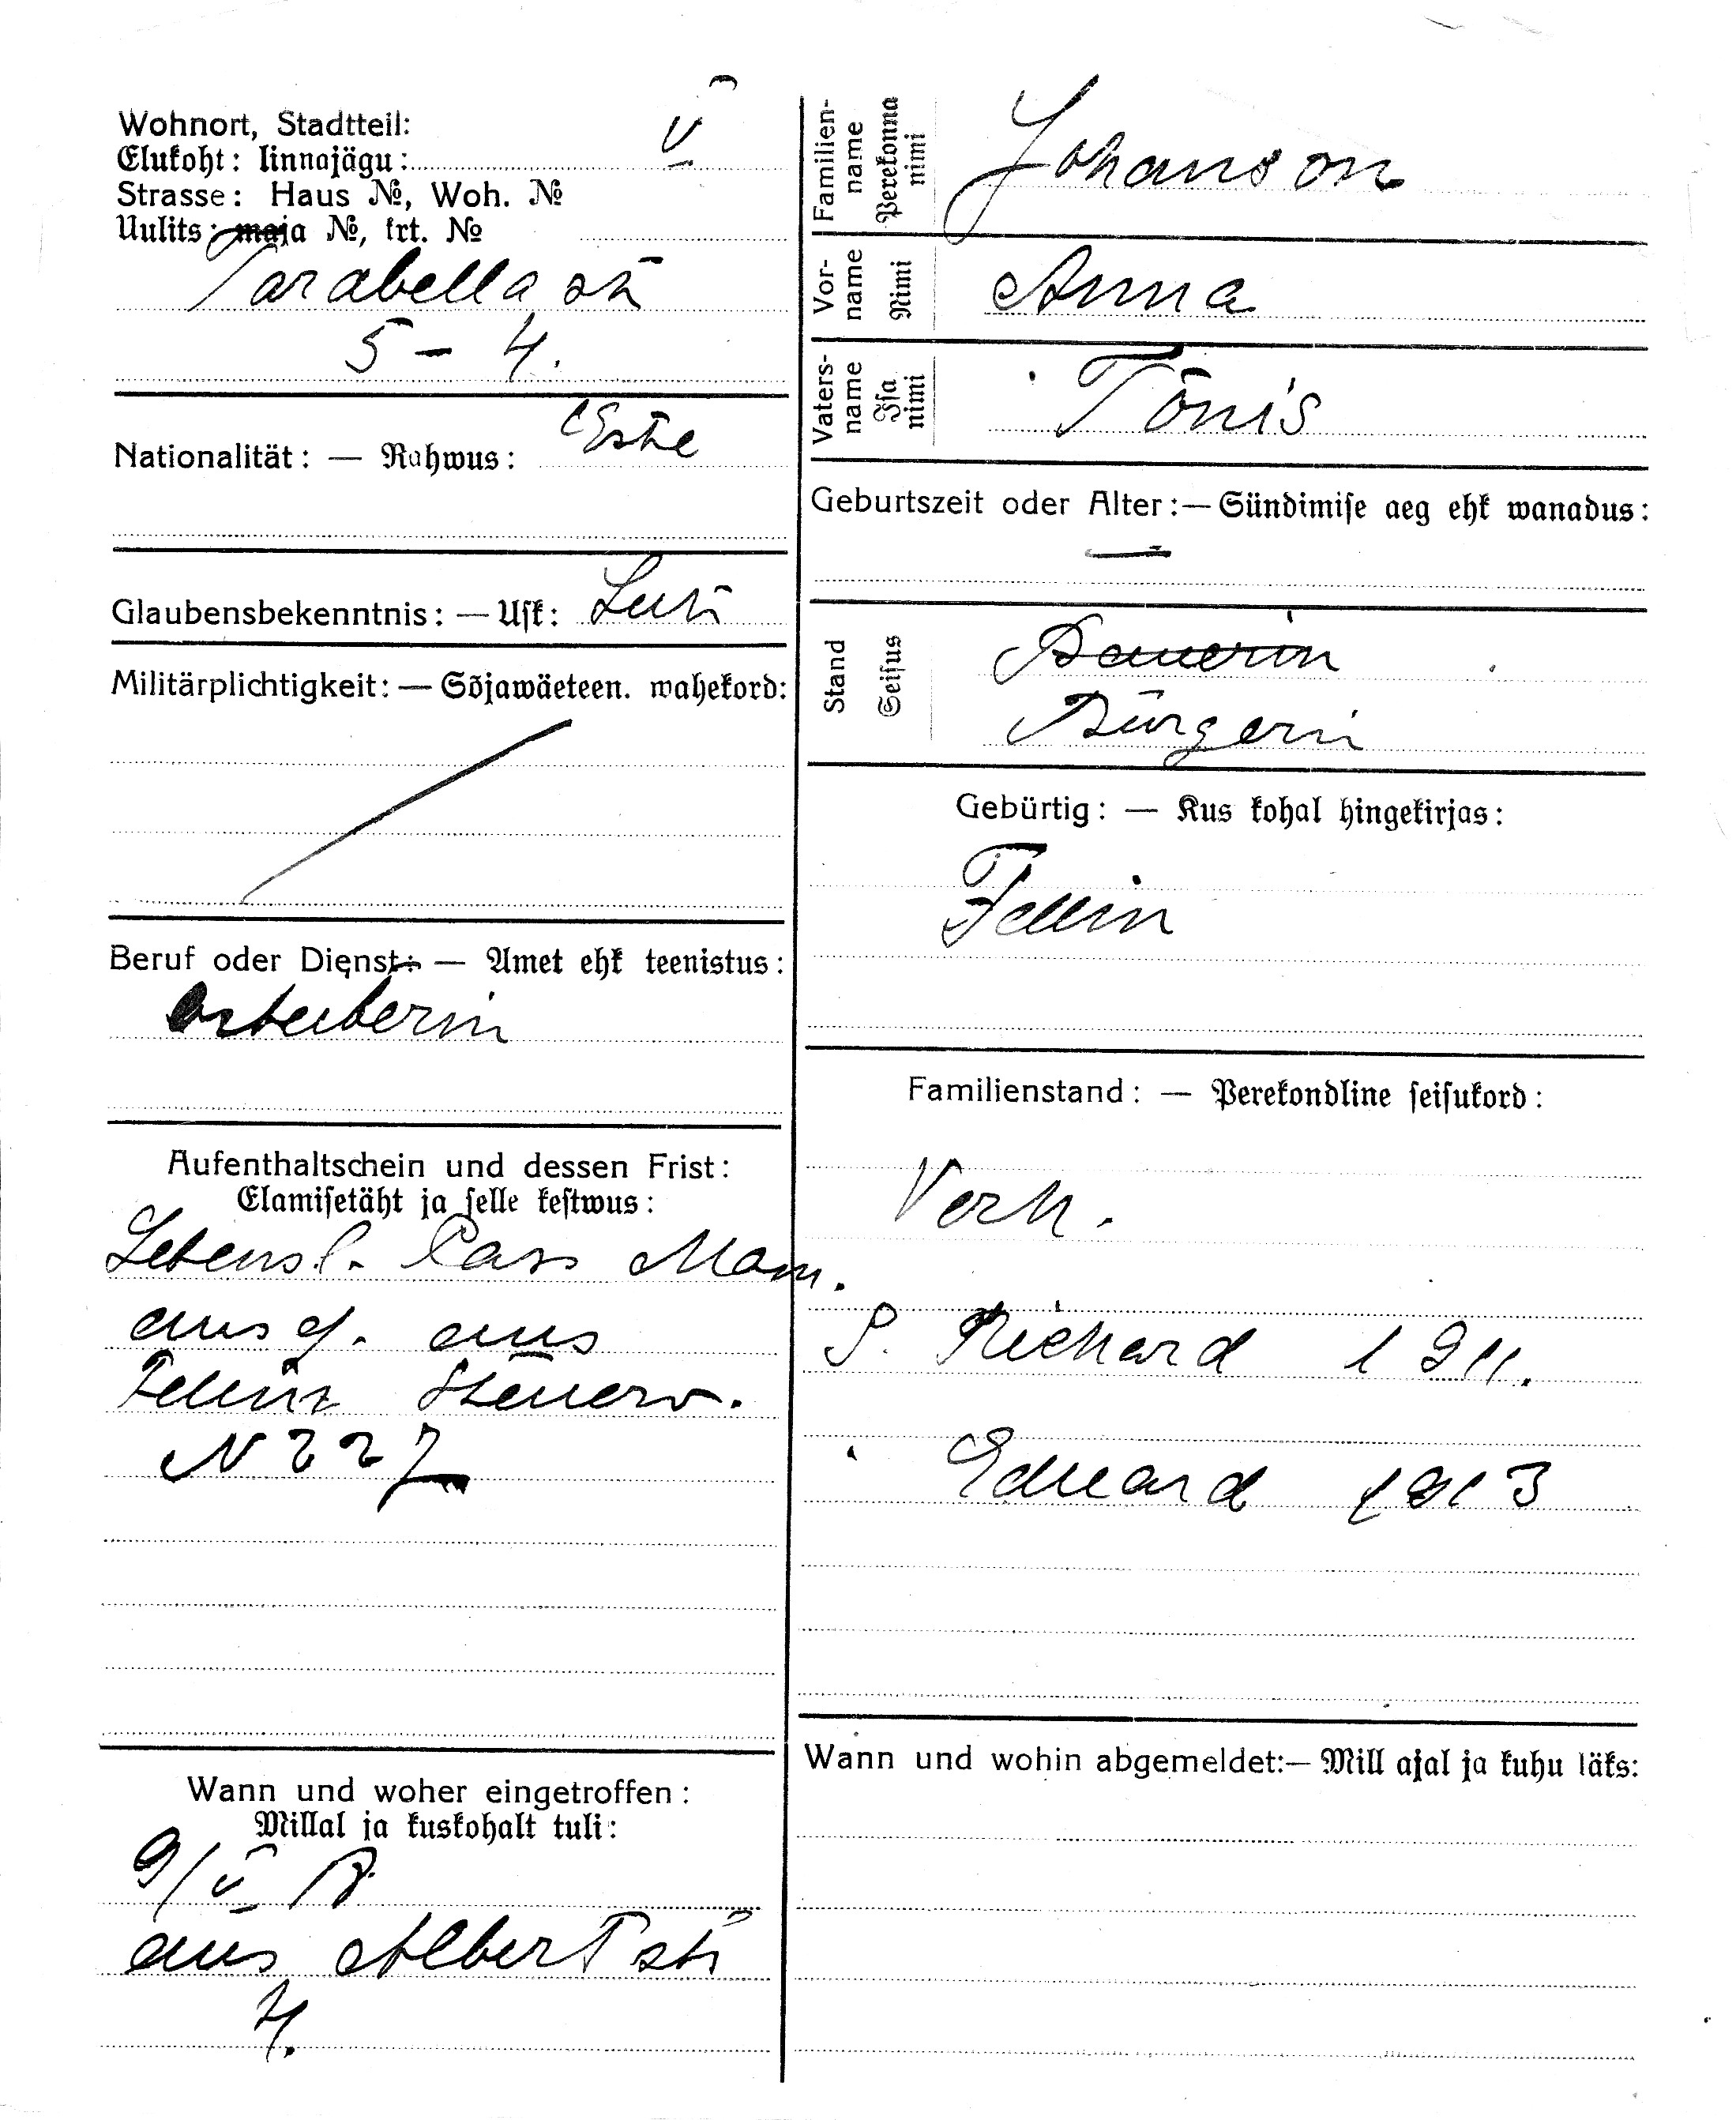 Wohnort, Stadtteil:
Elukoht: linnajägu: V
Strasse: Haus №, Woh. №
Uulits: maja №, krt. №
Tarabella str
5 – 4.
Nationalität: — Rahwus: Este
Glaubensbekenntnis: — Usk: Luth
Militärplichtigkeit: — Sõjawäeteen. wahekord:
Beruf oder Dienst: — Amet ehk teenistus:
Aufenthaltschein und dessen Frist:
Elamisetäht ja selle kestwus:
Lebensl. Pass Mann.
ausg. aus
Fellin Steuerv.
N 227
Wann und woher eingetroffen:
Millal ja kuskohalt tuli:
9/V 18.
aus Albert str
4.
Familien-name Perekonna nimi Johanson
Vor-name Nimi Anna
Vaters-name Isa nimi Tõnis
Geburtszeit oder Alter:— Sündimise aeg ehk wanadus:
—
Stand Seisus Bauerin
Bürgerin
Gebürtig: — Kus kohal hingekirjas:
Fellin
Familienstand: — Perekondline seisukord:
Verh.
S. Richard 1911.
Eduard 1913
Wann und wohin abgemeldet:— Mill ajal ja kuhu läks: